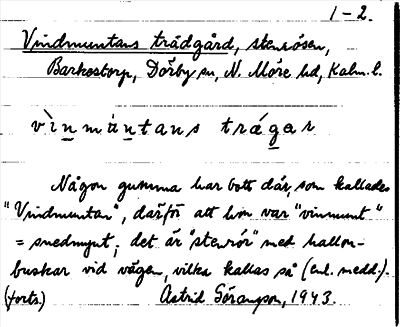 1-2.
Vindmuntans trädgård, stenrösen,
Barkestorp, Dörby sn, N. Möre hd, Kalm. l.
vìnmùntans trágar
Någon gumma har bott där, som kallades
"Vindmuntan", därför att hon var "vinmunt"
= snedmynt; det är "stenrör" med hallon-
buskar vid vägen, vilka kallas så (enl. medd.).
(forts.) Astrid Göransson, 1943.